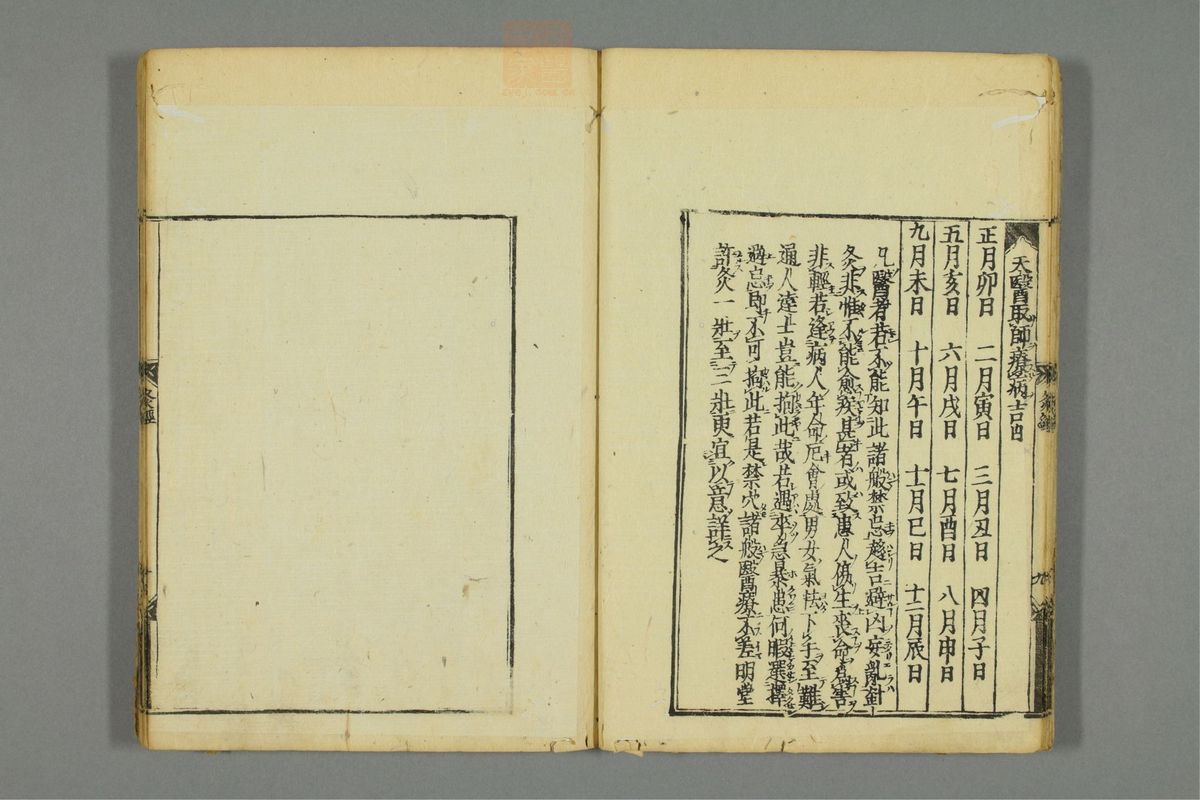 天醫取師療病吉凶
正月卯日 二月寅日 三月丑日 四月子日
五月亥日 六月戌日 七月酉日 八月申日
九月未日 十月午日 十一月巳日 十二月辰日
凡醫者若不能知此諸般禁忌趨吉避凶妄亂針
灸非惟不能愈疾甚者或致患人傷生喪命爲害
非輕若逢病人年命厄會處男女氣怯下手至難
通人達士豈能拘此哉若遇卒急暴患何暇選擇
避忌即不可拘此若是禁穴諸般醫療不差明堂
許灸一壯至三壯更宜以意詳之